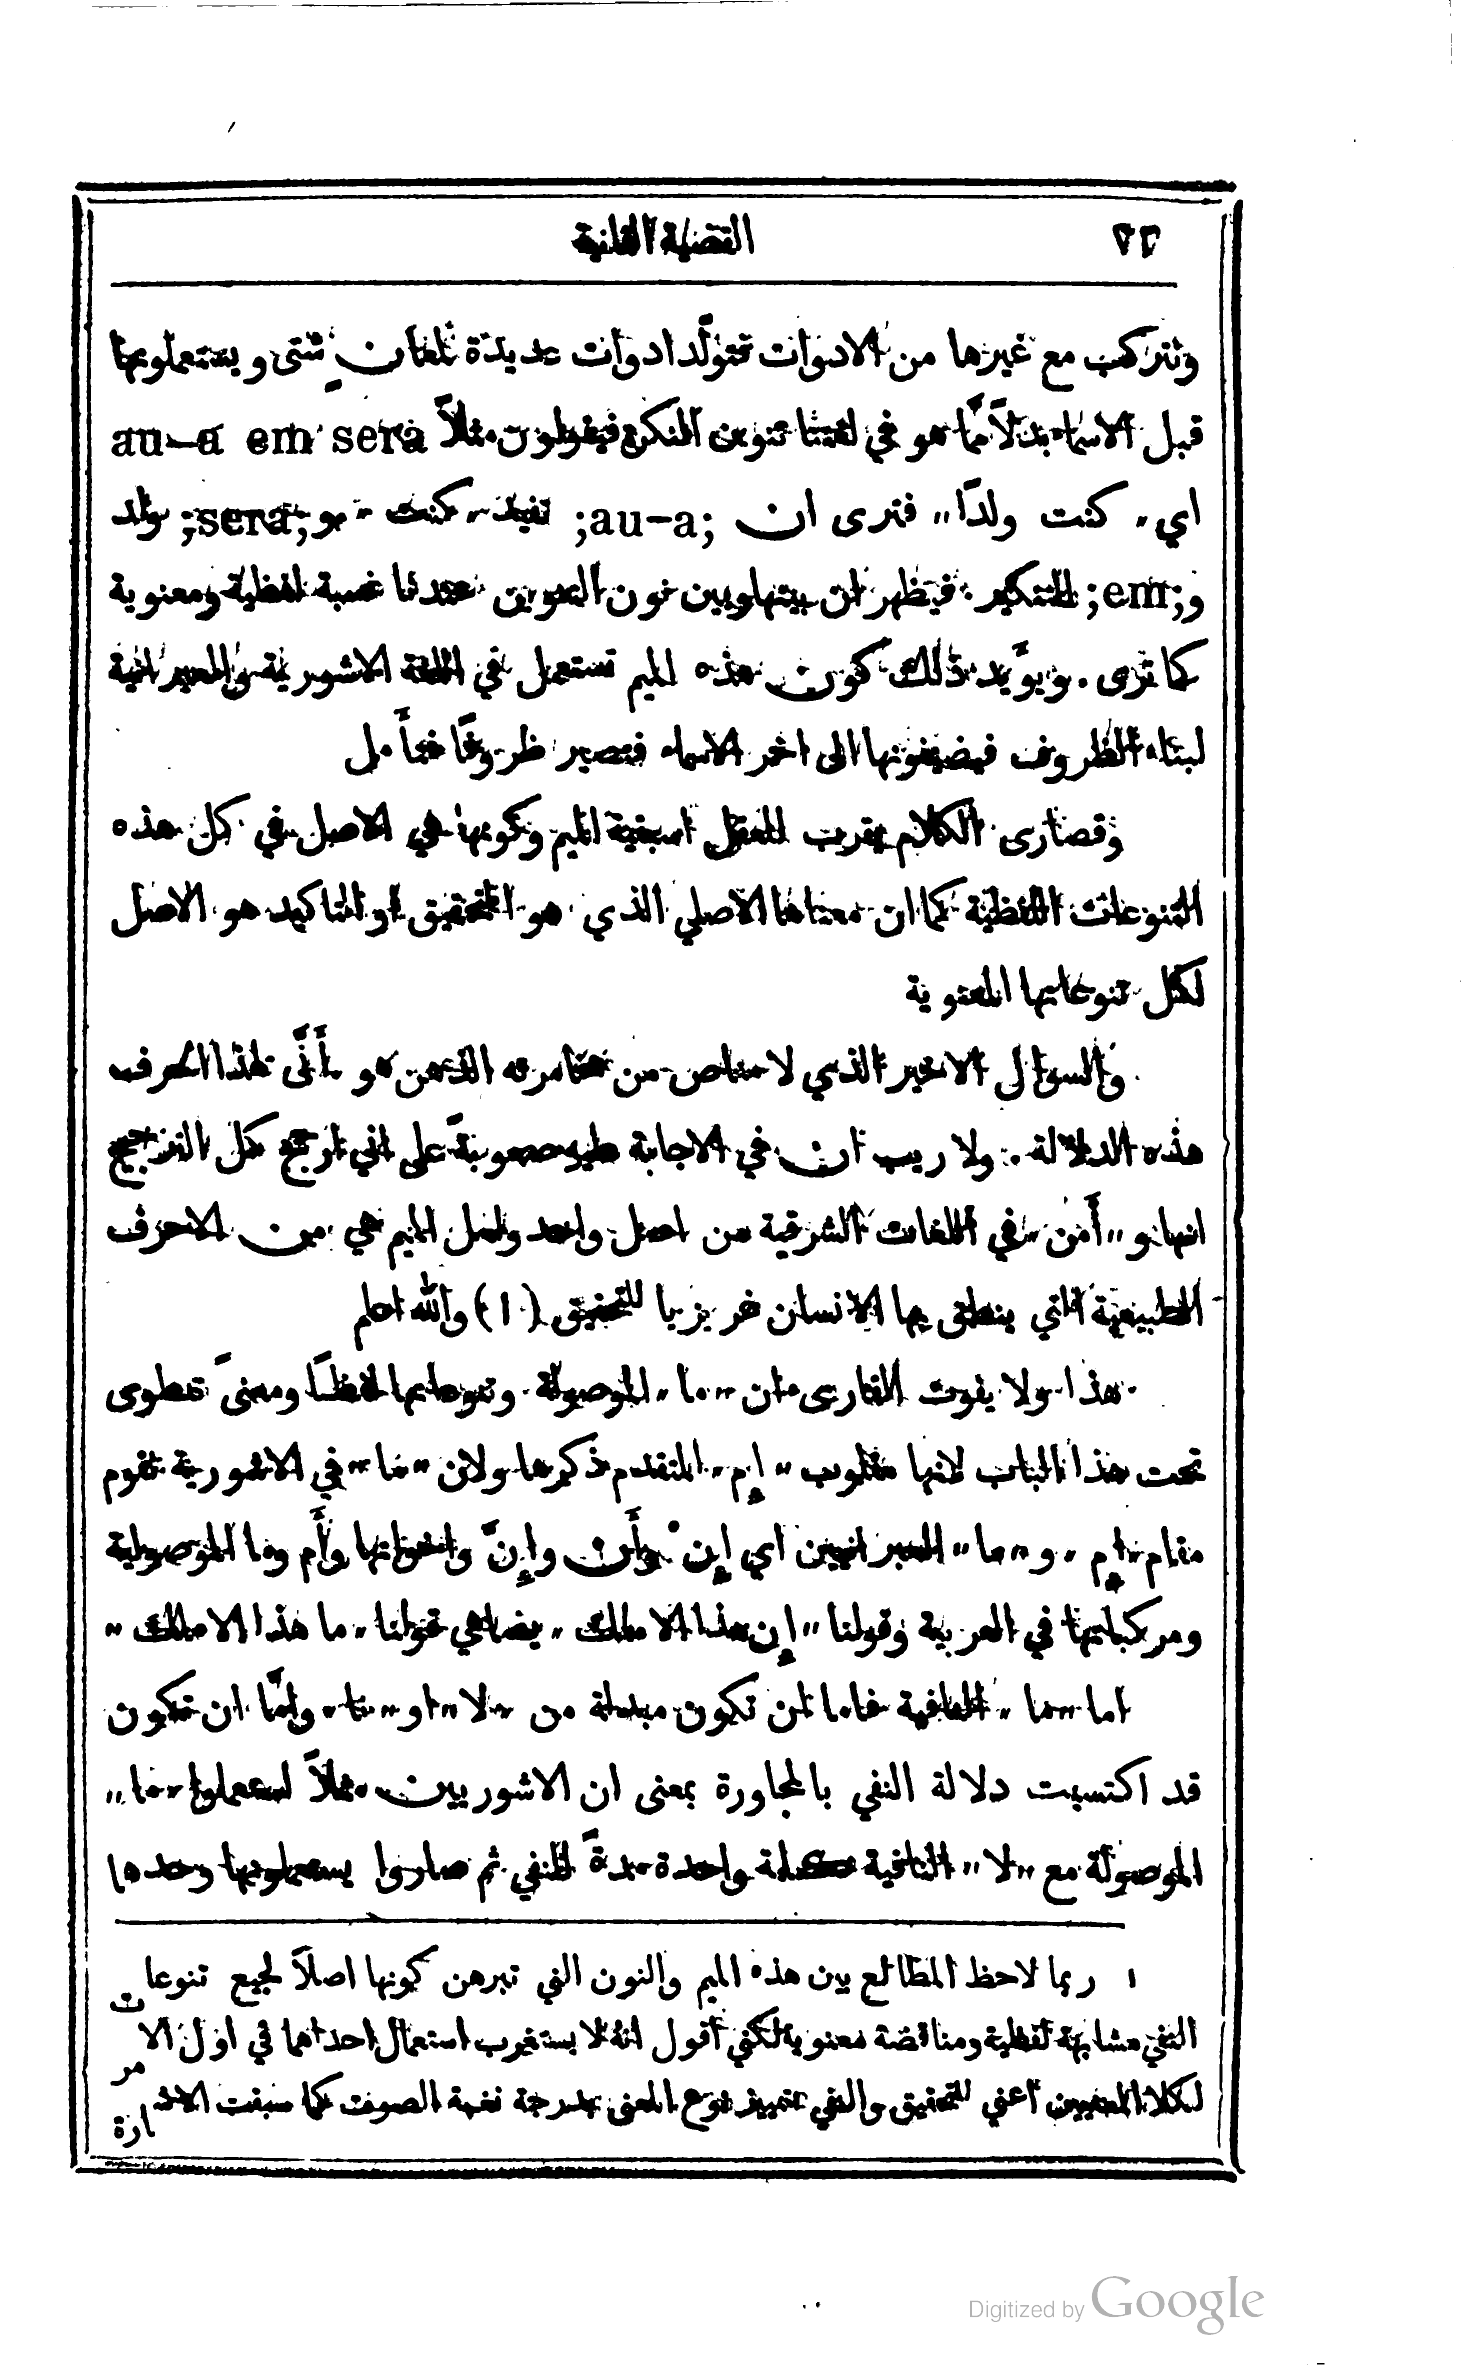 ٢٢ القضية الثانية
وتتركب مع غيرها من الادوات فتتولَّد ادوات عديدة لمعانٍ شتى ويستعملونها
قبل الاسماء بدلاً مما هو في لغتنا تنوين المنكر فيقولون مثلاً au–a em sera
اي „ كنت ولدًا „ فنرى ان ;au–a; تفيد „ كنت „ و ;sera; ولد
و ;em; للتنكير . فيظهر ان بينها وبين نون التنوين عندنا نسبة لفظية ومعنوية
كما ترى . ويؤَيد ذلك كون هذه الميم تستعمل في اللغة الاشورية والعبرانية
لبناء الظروف فيضيفونها الى اخر الاسماء فتصير ظروفًا فتأَمل
وقصارى الكلام يقرب للعقل اسبقية الميم وكونها هي الاصل في كل هذه
التنوعات اللفظية كما ان معناها الاصلي الذي هو التحقيق او التاكيد هو الاصل
لكل تنوعاتها المعنوية
والسوَال الاخير الذي لا مناص من مخامرته الذهن هو أَنَّى لهذا الحرف
هذه الدلالة . ولا ريب ان في الاجابة عليه صعوبةً على اني ارجح كل الترجيح
انها و „ أَمن „ في اللغات الشرقية من اصل واحد ولعل الميم هي من الاحرف
الطبيعية التي ينطق بها الانسان غريزيا للتحقيق (١) والله اعلم
هذا ولا يفوت القارىء ان „ ما „ الموصولة وتنوعاتها لفظًا ومعنىً تنطوي
تحت هذا الباب لانها مقلوب „ إِم „ المتقدم ذكرها ولان „ ما „ في الاشورية تقوم
مقام „ إِم „ و „ ما „ العبرانيين اي إِن وأَن وإِنَّ واخواتها وأَم وما الموصولية
ومركباتها في العربية وقولنا „ إِن هذا الا ملك „ يضاهي قولنا „ ما هذا الا ملك „
اما „ ما „ النافية فاما ان تكون مبدلة من „ لا „ او „ نا „ وامَّا ان تكون
قد اكتسبت دلالة النفي بالمجاورة بمعنى ان الاشوريين مثلاً استعملوا „ ما „
الموصولة مع „ لا „ النافية ككلمة واحدة مدةً للنفي ثم صاروا يستعملونها وحدها
١ ربما لاحظ المطالع بين هذه الميم والنون التي تبرهن كونها اصلاً لجميع تنوعات
النفي مشابهة لفظية ومناقضة معنوية لكني أقول انهُ لا يستغرب استعمال احداهما في اول الامر
لكلا المعنيين اعني للتحقيق والنفي بتمييز نوع المعنى بدرجة نغمة الصوت كما سبقت الاشارة
Digitized by Google